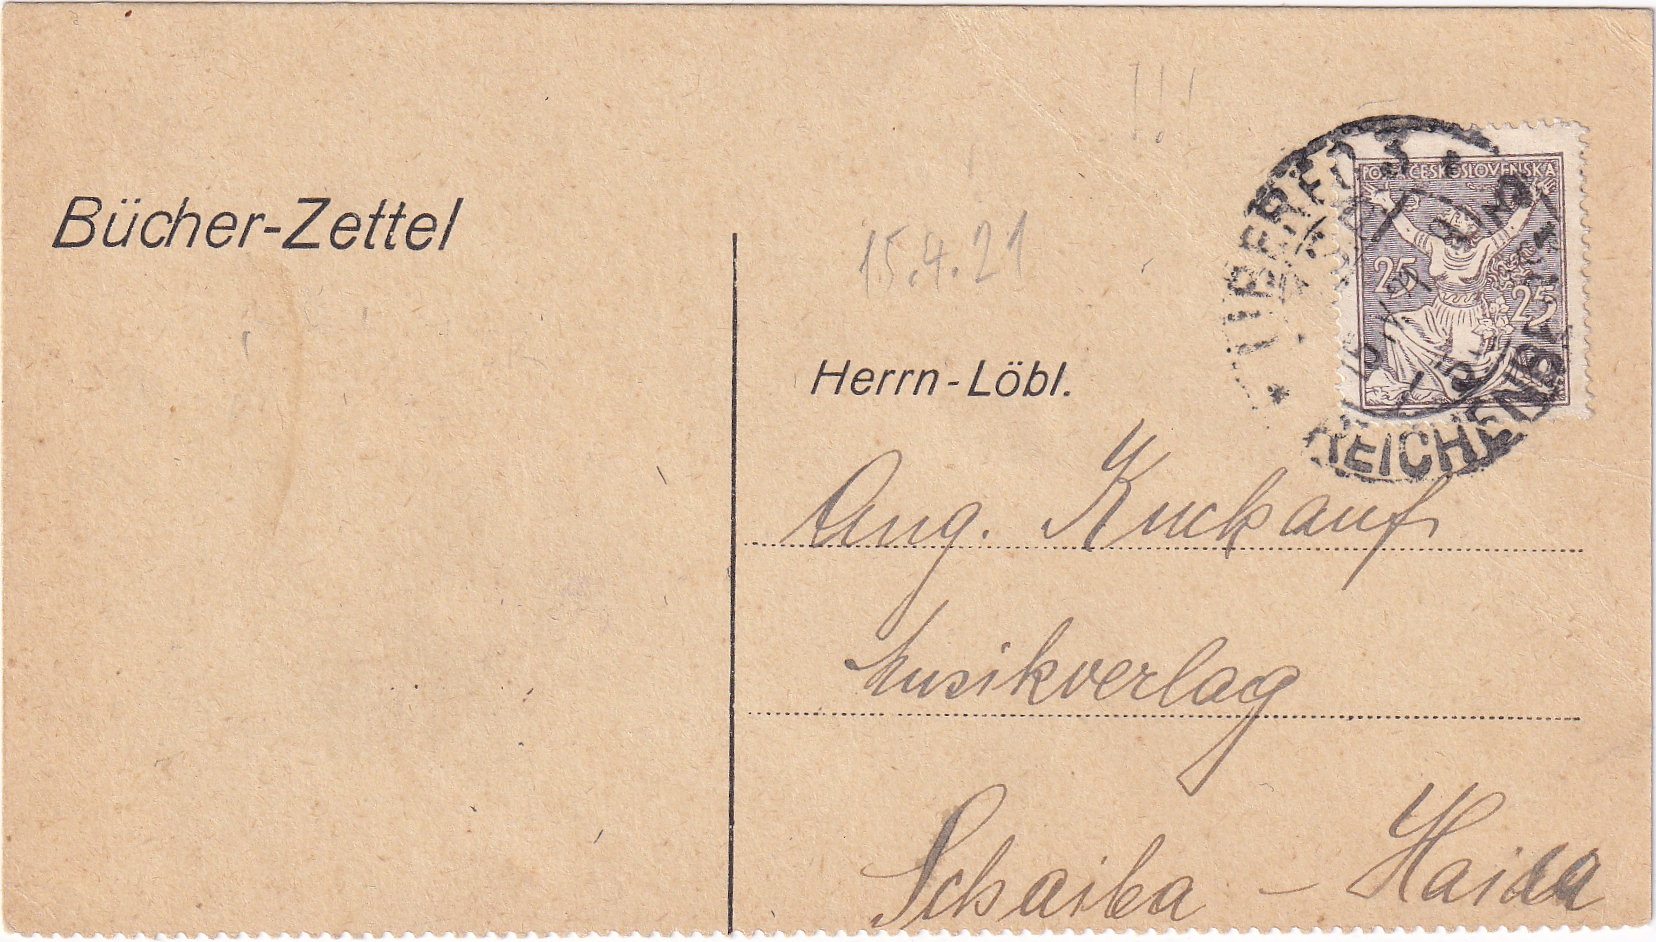 Bücher-Zettel
15.4.21
POŠTA ČESKOSLOVENSKÁ
25 25
LIBEREC 3
REICHENBERG
Herrn-Löbl.
Aug. Kuckauf
Musikverlag
Schaiba - Haida